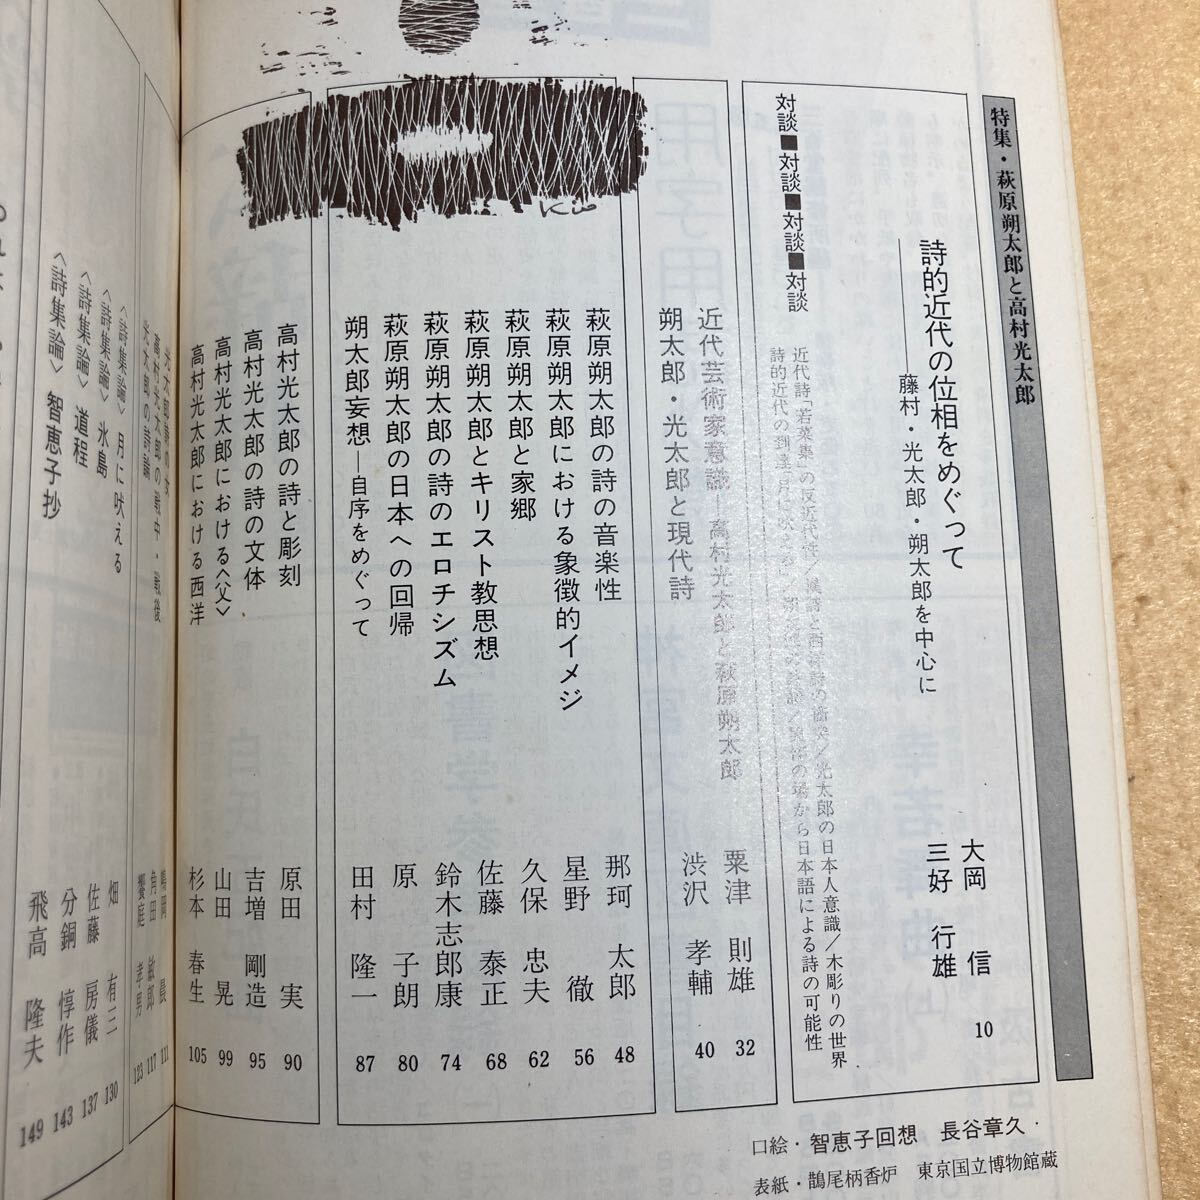 特集・萩原朔太郎と高村光太郎
対談■対談■対談■対談
詩的近代の位相をめぐって
──藤村・光太郎・朔太郎を中心に
大岡 信
三好 行雄
10
近代詩「若菜集」の反近代性／漢詩と西洋詩の衝突／光太郎の日本人意識／木彫りの世界
近代芸術家意識─高村光太郎と萩原朔太郎 粟津 則雄 32
朔太郎・光太郎と現代詩 渋沢 孝輔 40
萩原朔太郎の詩の音楽性 那珂 太郎 48
萩原朔太郎における象徴的イメジ 星野 徹 56
萩原朔太郎と家郷 久保 忠夫 62
萩原朔太郎とキリスト教思想 佐藤 泰正 68
萩原朔太郎の詩のエロチシズム 鈴木志郎康 74
萩原朔太郎の日本への回帰 原 子朗 80
朔太郎妄想─自序をめぐって 田村 隆一 87
高村光太郎の詩と彫刻 原田 実 90
高村光太郎の詩の文体 吉増 剛造 95
高村光太郎における〈父〉 山田 晃 99
高村光太郎における西洋 杉本 春生 105
111
高村光太郎の戦中・戦後 角田 敏郎 117
光太郎の詩論 饗庭 孝男 123
〈詩集論〉月に吠える 畑 有三 130
〈詩集論〉氷島 佐藤 房儀 137
〈詩集論〉道程 分銅 惇作 143
〈詩集論〉智恵子抄 飛高 隆夫 149
口絵・智恵子回想 長谷章久
表紙・鵲尾柄香炉 東京国立博物館蔵